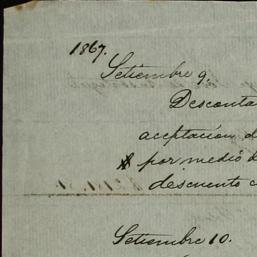 1867.
Setiembre 9.
Desconta
aceptacion d
por medio d
descuento c
Setiembre 10.